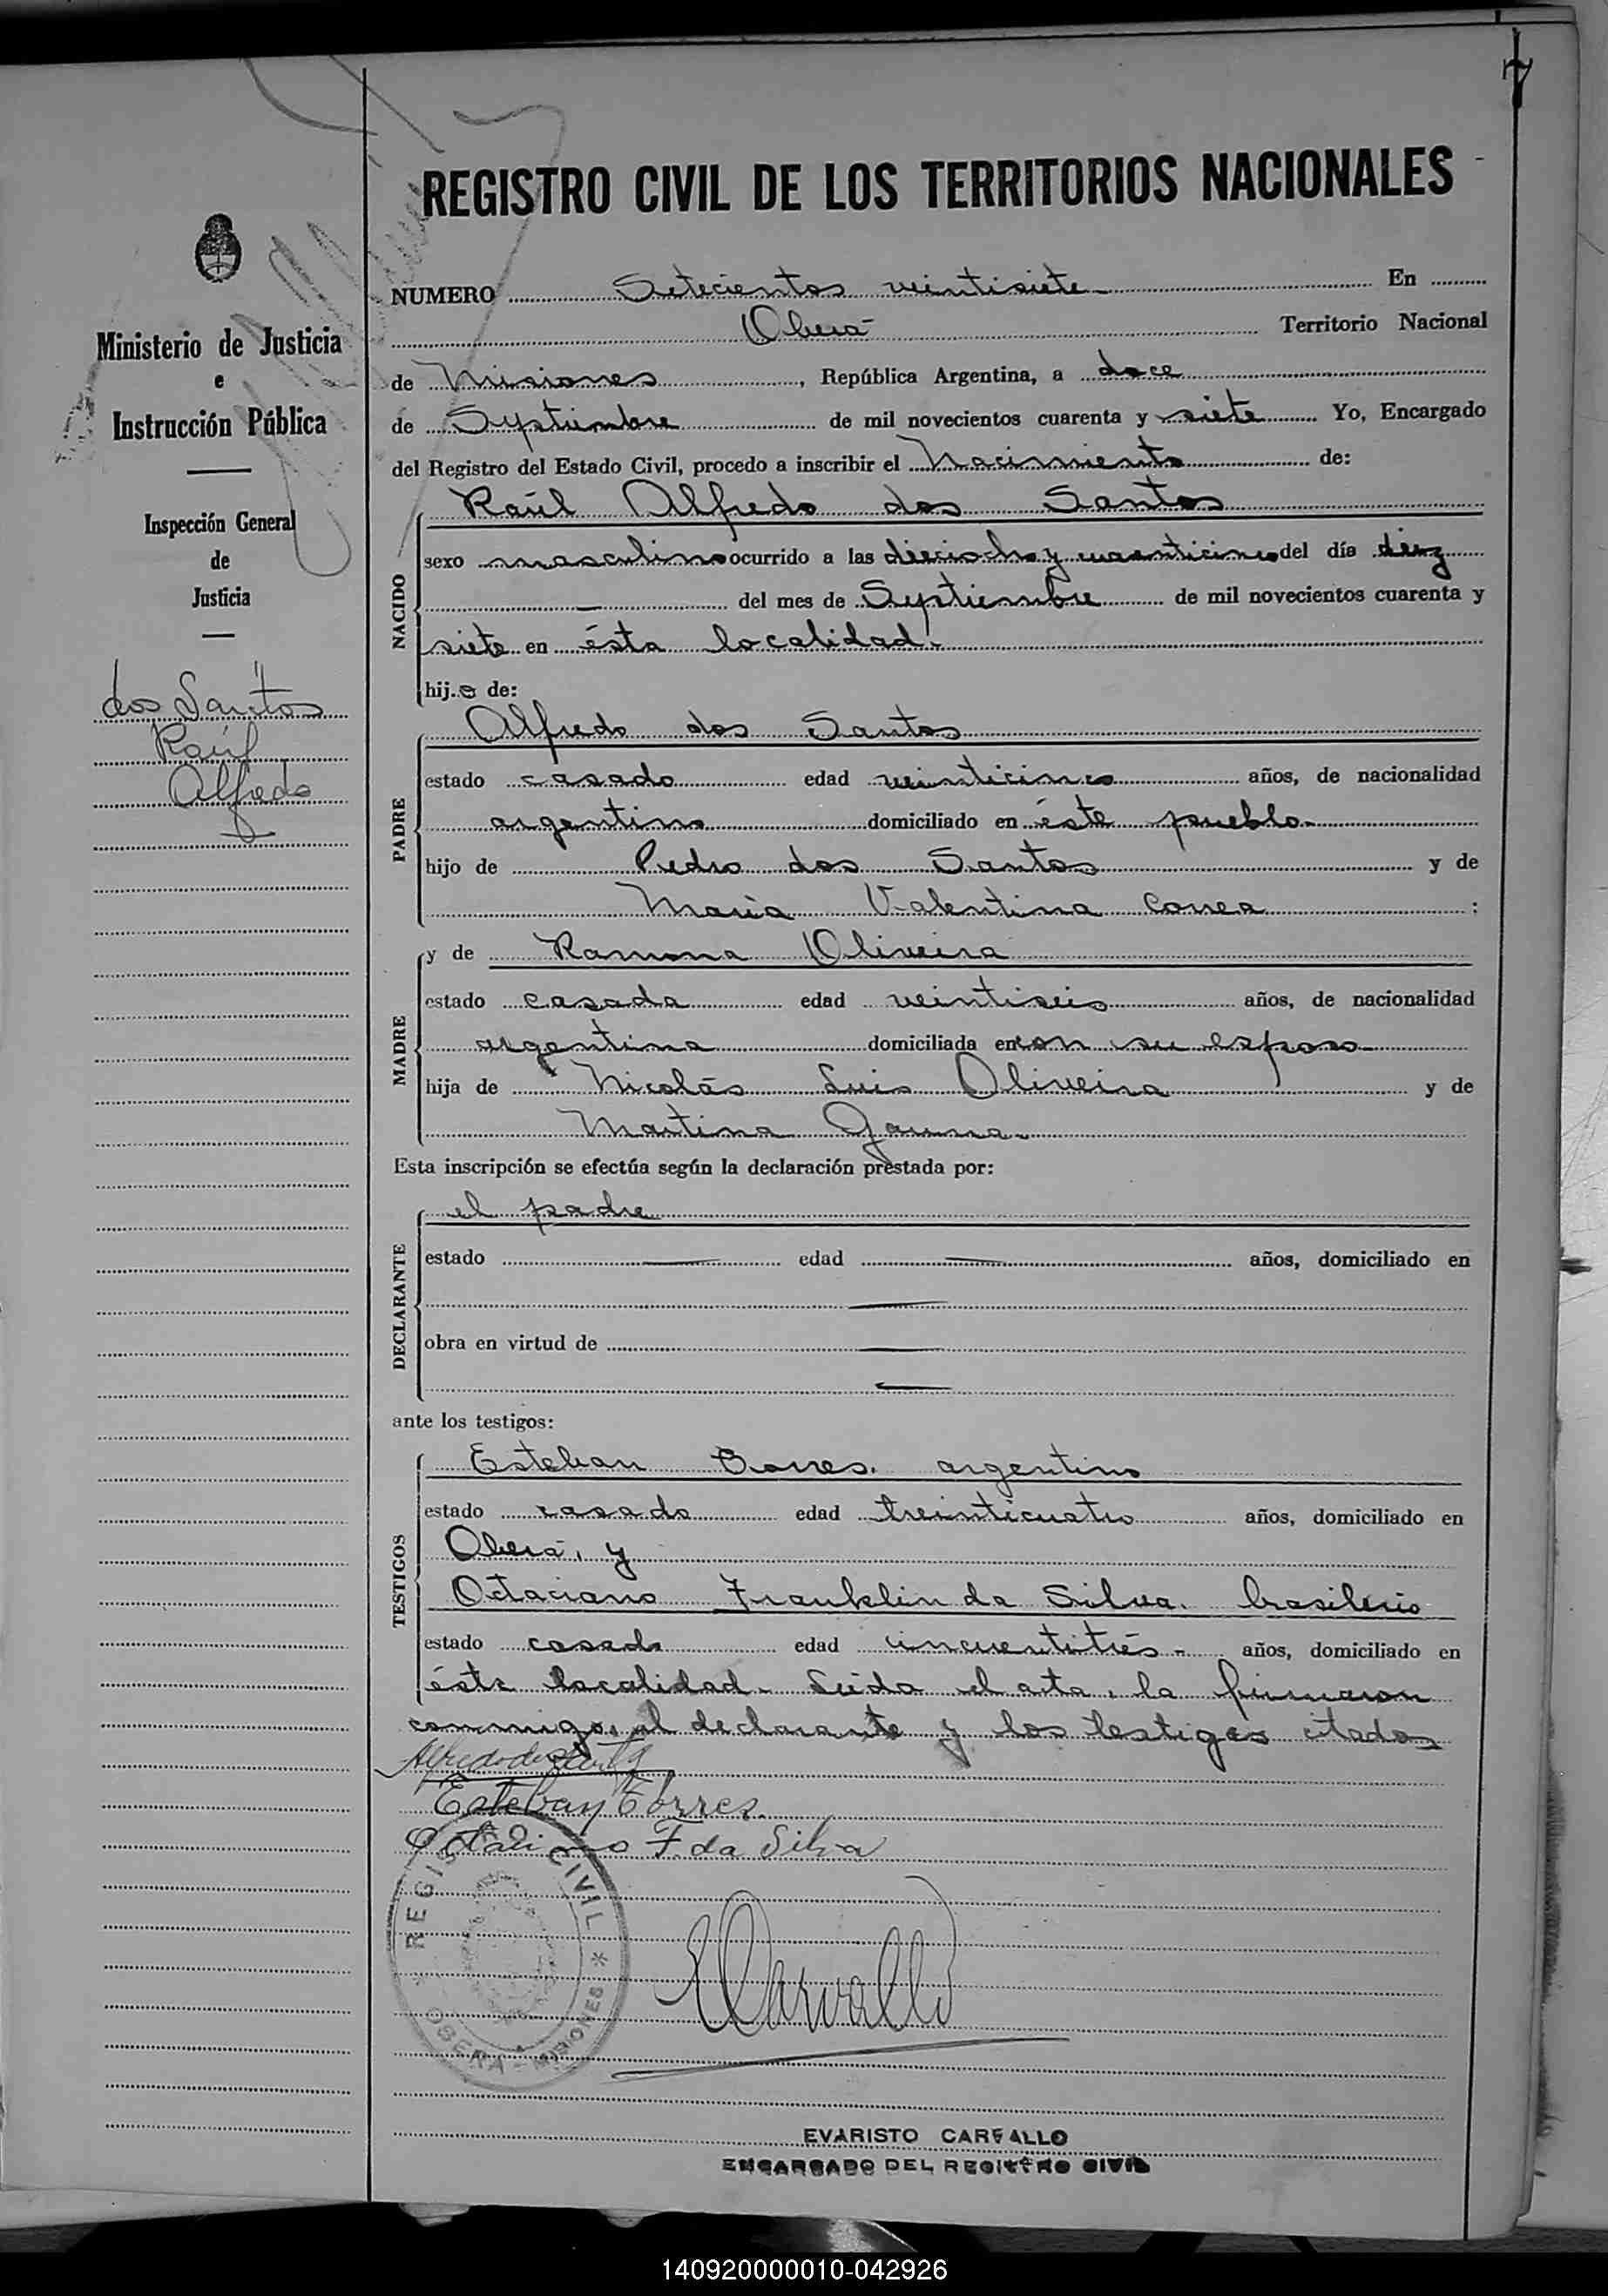 7
REGISTRO CIVIL DE LOS TERRITORIOS NACIONALES
Ministerio de Justicia
e
Instrucción Pública
Inspección General
de
Justicia
dos Santos
Raúl
Alfredo
NUMERO Setecientos veintisiete En
Oberá Territorio Nacional
de Misiones, República Argentina, a doce
de Septiembre de mil novecientos cuarenta y siete Yo, Encargado
del Registro del Estado Civil, procedo a inscribir el Nacimiento de:
NACIDO
Raúl Alfredo dos Santos
sexo masculino ocurrido a las dieciocho y del día diez
del mes de Septiembre de mil novecientos cuarenta y
siete en ésta localidad.
hijo de:
PADRE
Alfredo dos Santos
estado casado edad veinticinco años, de nacionalidad
argentino domiciliado en éste pueblo
hijo de Pedro dos Santos y de
María Valentina Correa :
MADRE
y de Ramona Oliveira
estado casada edad veintiseis años, de nacionalidad
argentina domiciliada en con su esposo
hija de Nicolás Luis Oliveira y de
Martina Gauna
Esta inscripción se efectúa según la declaración prestada por:
DECLARANTE
el padre
estado — edad — años, domiciliado en
—
obra en virtud de —
—
ante los testigos:
TESTIGOS
Esteban Torres. argentino
estado casado edad treinticuatro años, domiciliado en
Oberá, y
Octaciano Franklin da Silva. brasilero
estado casado edad cincuentitrés - años, domiciliado en
ésta localidad. Leida el acta, la firmaron
conmigo, el declarante y los testigos citados
Alfredo dos Santos
Esteban Torres.
Octaciano F. da Silva
REGISTRO CIVIL * OBERA - MISIONES *
ECarvallo
EVARISTO CARVALLO
ENCARGADO DEL REGISTRO CIVIL
140920000010-042926